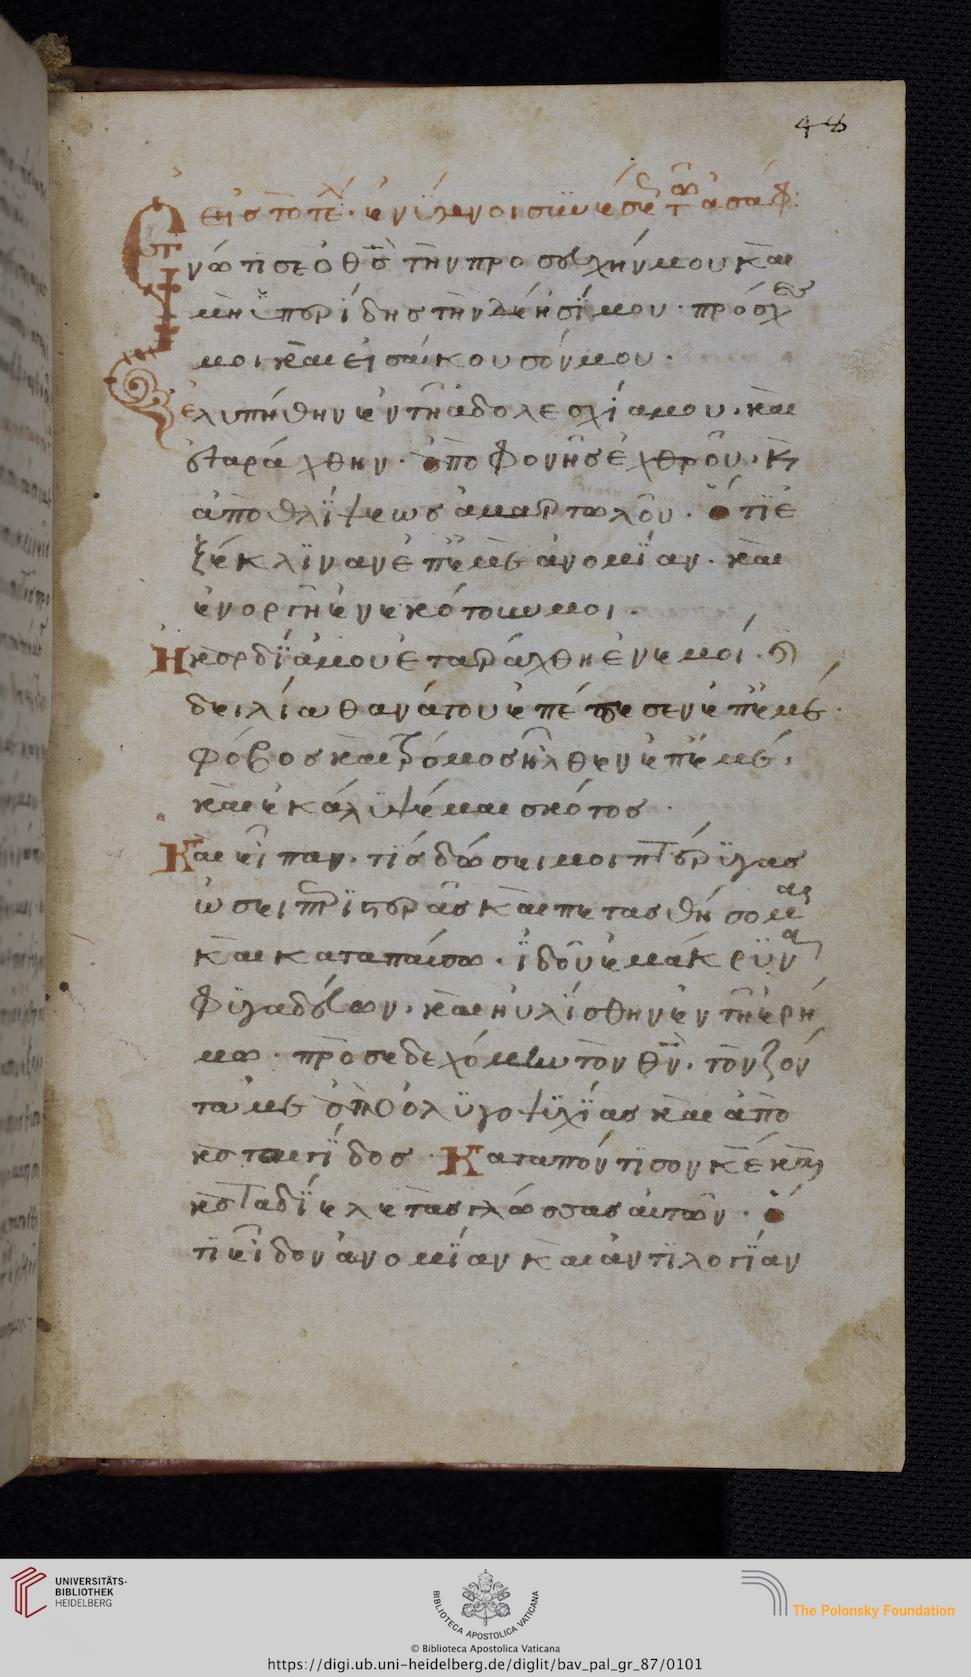 48
εἰς τὸ τέλ· ἐν ὕμνοις συνέσε τῶ ἀσάφ:
Ἐνώτισε ὁ θς τὴν προσευχήν μου καὶ
μὴ ὑπερίδης τὴν δέησίν μου· πρόσχες
μοι καὶ εἰσάκουσόν μου·
ἐλυπήθην ἐν τῆ ἀδολεσχία μου· καὶ
ἐταράχθην· ἀπὸ φονῆς ἐχθροῦ· κ
ἀπο θλίψεως ἁμαρτωλοῦ· ὅτι ἐ
ξέκλιναν ἐπ ἐμὲ ἀνομίαν· καὶ
ἐν οργῆ ἐνεκότουν μοι·
Η καρδία μου ἐταράχθη ἐν ἐμοί· κ
δειλία θανάτου ἐπέπεσεν ἐπ ἐμέ·
φόβος καὶ τρόμος ἦλθεν ἐπ ἐμέ·
καὶ ἐκάλυψέ με σκότος·
Καὶ εἶπαν· τίς δώσει μοι πτέρυγας
ὡσεὶ περιστερᾶς καὶ πετασθήσομαι
καὶ καταπαύσω· ἰδοῦ ἐμάκρυνα
φυγαδεύων· καὶ ηὐλίσθην ἐν τῆ ἐρή
μω· προσεδεχόμην τὸν θν· τὸν σόζον
τά με ἀπὸ ὀλυγοψυχίας καὶ ἀπὸ
καταιγίδος· Καταπόντισον κέ καὶ
καταδίελε τὰς γλώσσας αὐτῶν· ὅ
τι εἶδον ἀνομίαν καὶ ἀντιλογίαν
UNIVERSITÄTS-
BIBLIOTHEK
HEIDELBERG
BIBLIOTECA APOSTOLICA VATICANA
The Polonsky Foundation
© Biblioteca Apostolica Vaticana
https://digi.ub.uni-heidelberg.de/diglit/bav_pal_gr_87/0101